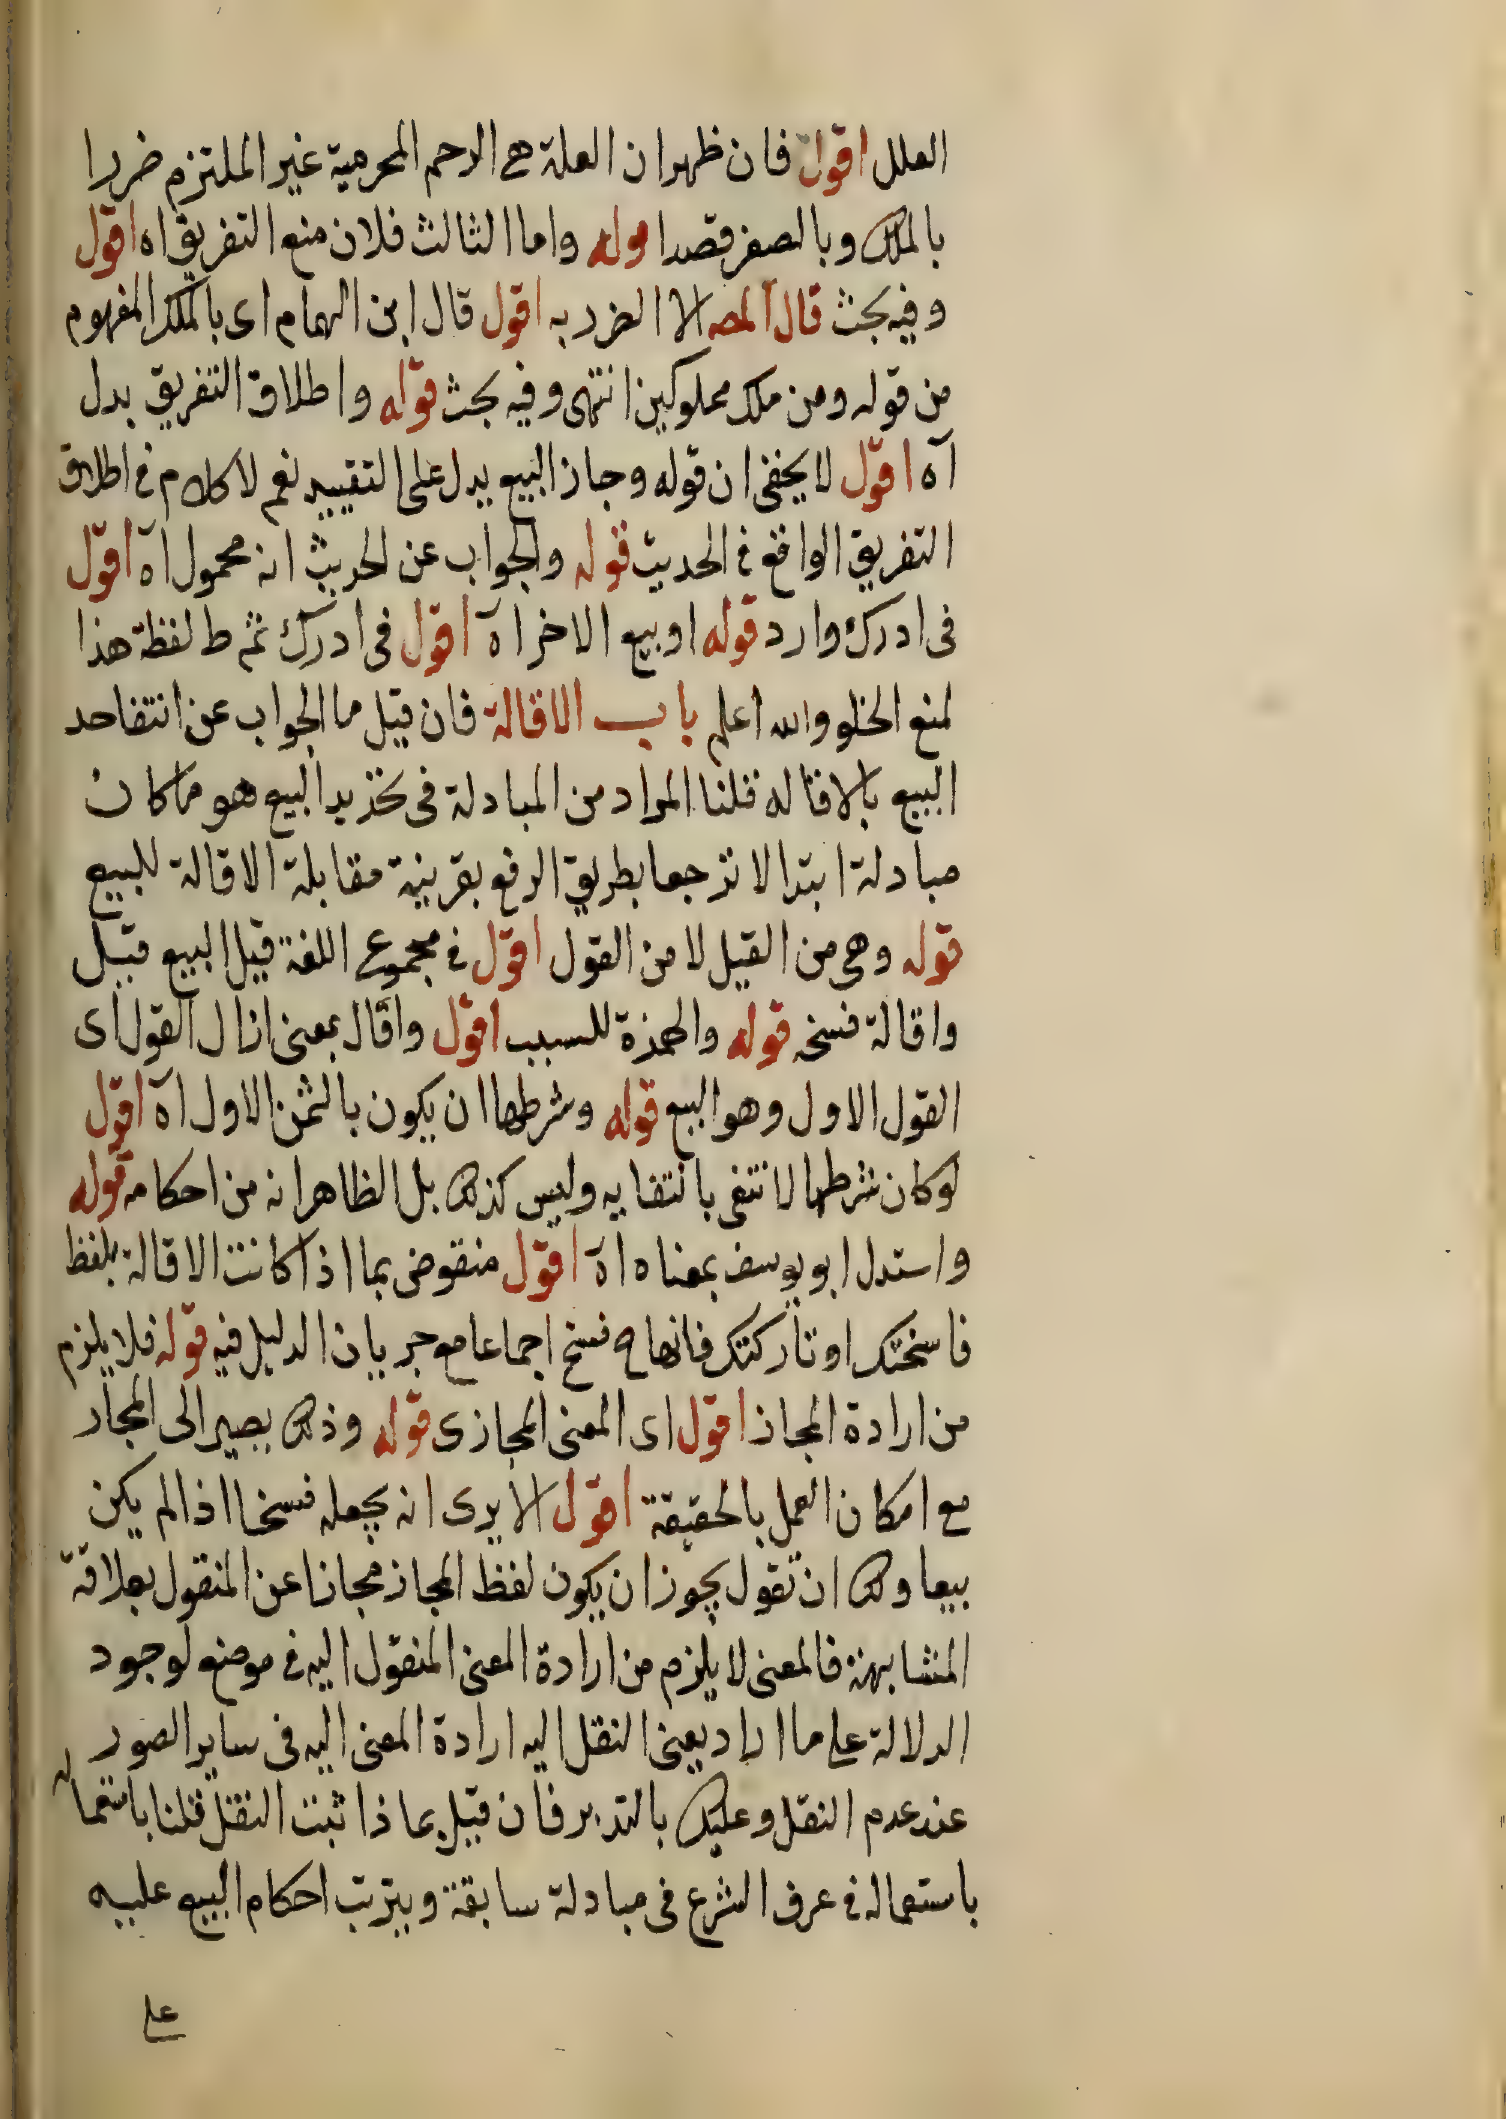 العلل اقول فان ظهر ان العلة هى الرحم المحرمية غير الملتزم ضررا
بالملك وبالصغر قصدا قوله واما الثالث فلان منع التفريق اه اقول
وفيه بحث قال المصـ الا الضرر به اقول قال ابن الهمام اى بالملك المفهوم
من قوله ومن ملك مملوكين انتهى وفيه بحث قوله واطلاق التفريق يدل
آه اقول لا يخفى ان قوله وجاز البيع يدل على التقييد نعم لا كلام فى اطلاق
التفريق الواقع فى الحديث قوله والجواب عن الحديث انه محمول آه اقول
فى ادرك وارد قوله او بيع الاخر اه اقول فى ادرك ثم ط لفظة هذا
لمنع الخلو والله اعلم باب الاقالة فان قيل ما الجواب عن انتقاحد
البيع بالاقاله قلنا المراد من المبادلة فى تحديد البيع هو ما كان
مبادلة ابتدا لا ترجعا بطريق الرفع بقرينة مقابلة الاقالة للبيع
قوله وهى من القيل لا من القول اقول فى مجموع اللغة قيل البيع قيل
واقالة فسخه قوله والهمزة للسبب اقول واقال بمعنى ازال القول اى
القول الاول وهو البيع قوله وشرطها ان يكون بالثمن الاول آه اقول
لو كان شرطها لانتفى بانتفايه وليس كذلك بل الظاهر انه من احكامه قوله
واستدل ابو يوسف بمعناه اه اقول منقوض بما اذا كانت الاقالة بلفظ
فاسختك او تاركتك فانها ح فسخ اجماعا مع جريان الدليل فيه قوله فلا يلزم
من ارادة المجاز اقول اى المعنى المجازى قوله وذلك يصير الى المجاز
مع امكان العمل بالحقيقة اقول الا يرى انه يجعله فسخا اذا لم يكن
بيعا ولك ان تقول يجوز ان يكون لفظ المجاز مجازا عن المنقول بعلاقة
المشابهة فالمعنى لا يلزم من ارادة المعنى المنقول اليه فى موضع لوجود
الدلالة على ما اراد يعنى النقل اليه ارادة المعنى اليه فى ساير الصور
عند عدم النقل وعليك بالتدبر فان قيل بما ذا ثبت النقل قلنا باستعماله
باستعماله فى عرف الشرع فى مبادلة سابقة ويترتب احكام البيع عليه
على